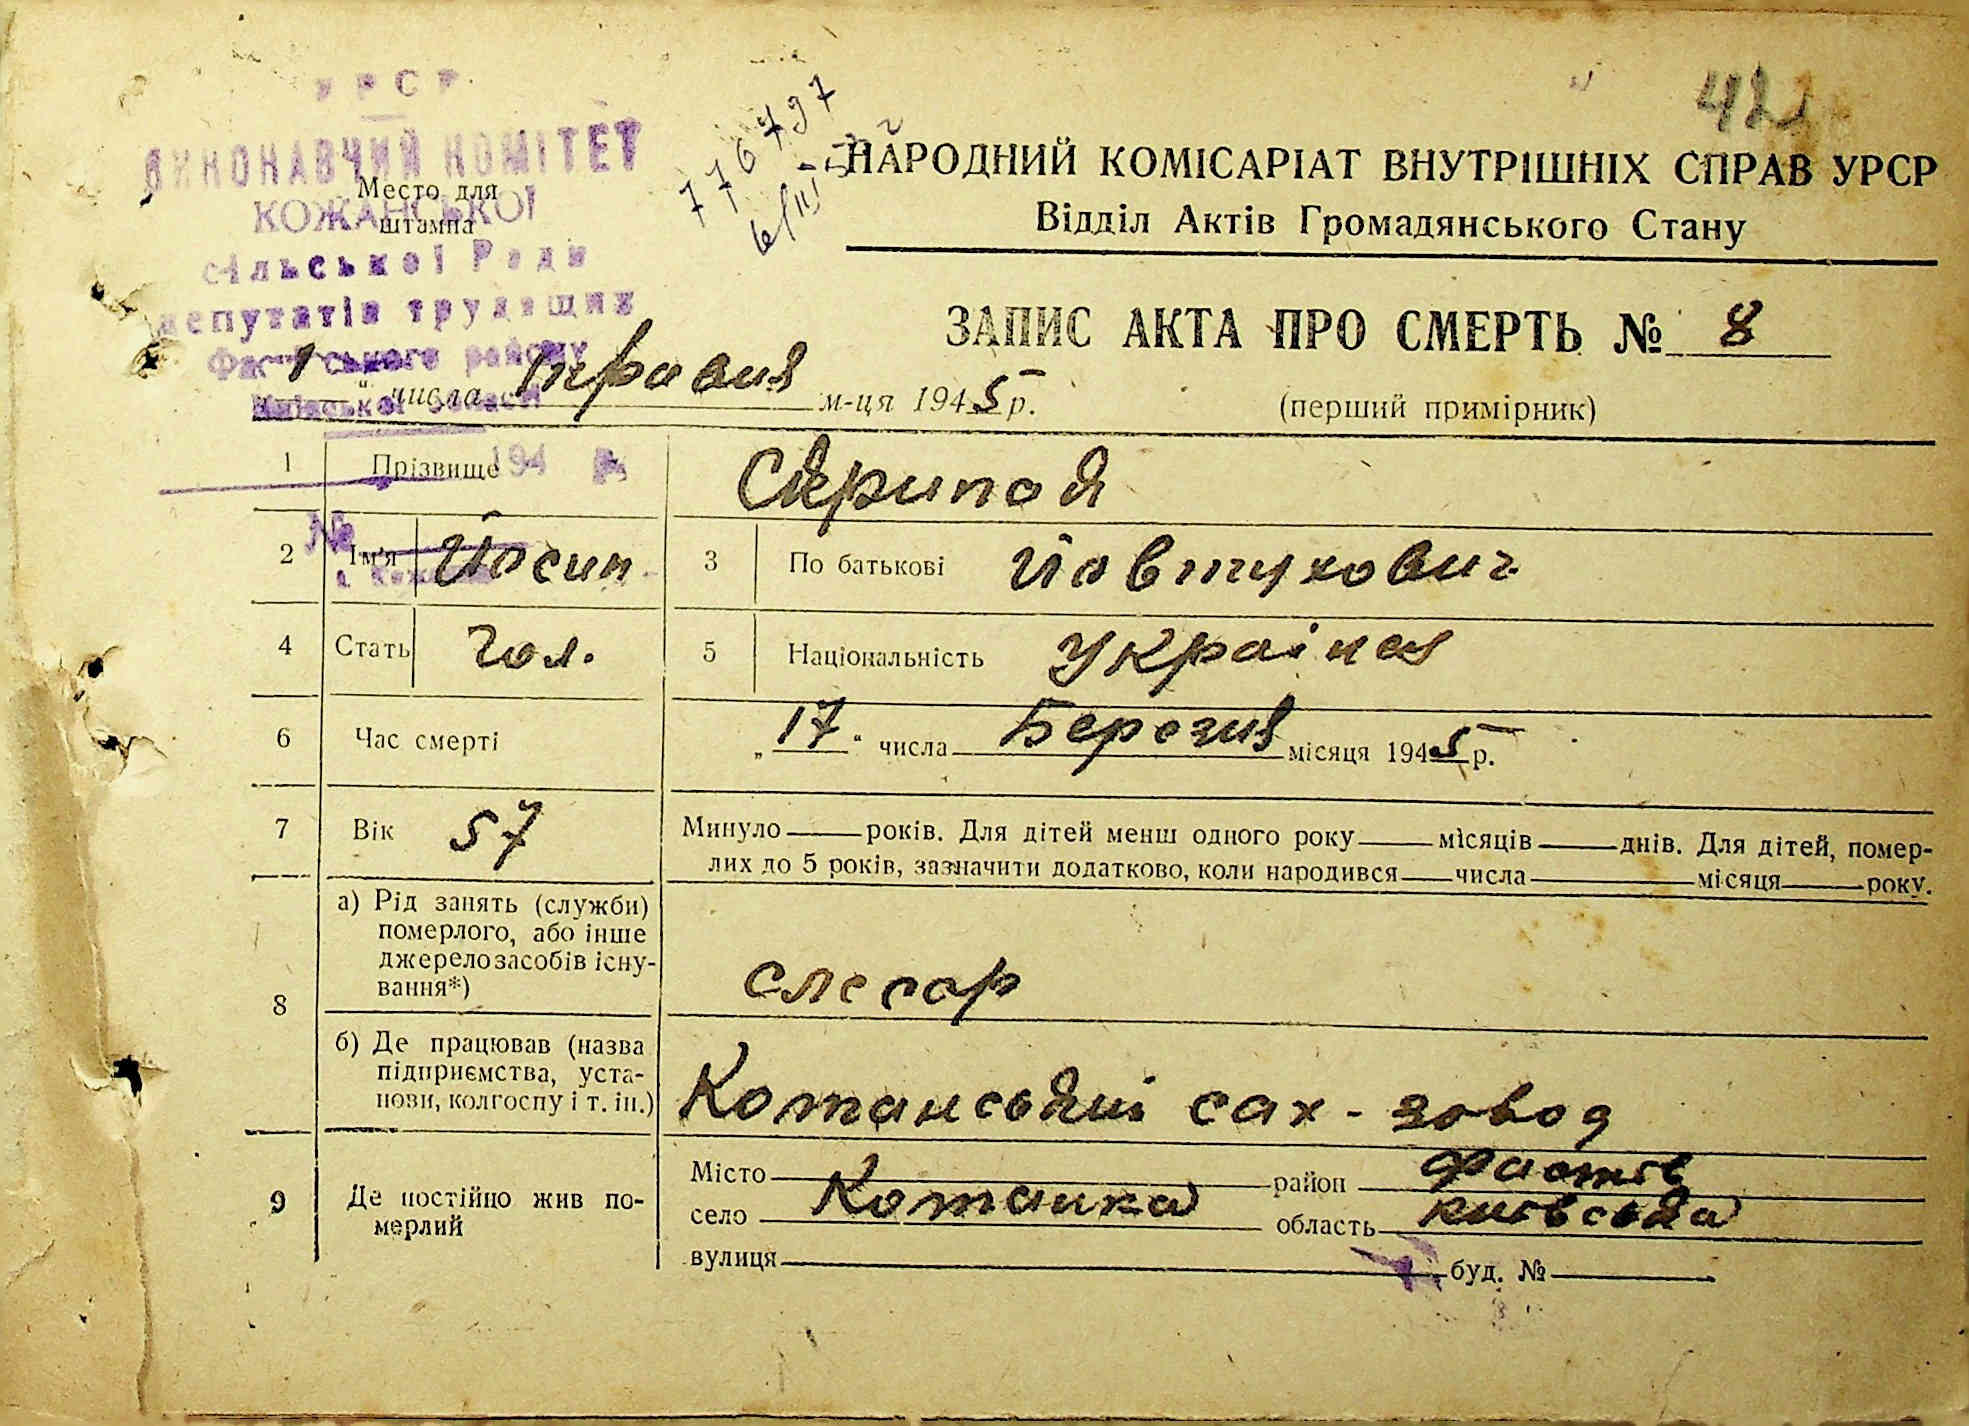 УРСР
ВИКОНАВЧИЙ КОМІТЕТ
Место для
КОЖАНСЬКОЇ
штампа
сільської Ради
депутатів трудящих
Фастівського району
Київської області
194 р.
№
776797
422
НАРОДНИЙ КОМІСАРІАТ ВНУТРІШНІХ СПРАВ УРСР
Відділ Актів Громадянського Стану
ЗАПИС АКТА ПРО СМЕРТЬ № 8
1 числа Травня м-ця 1945 р.
(перший примірник)
1 Прізвище Скрипок
2 Ім'я Йосип 3 По батькові Йовтухович
4 Стать Чол. 5 Національність Українєц
6 Час смерті „17“ числа Березня місяця 1945 р.
7 Вік 57 Минуло років. Для дітей менш одного року місяців днів. Для дітей, помер-
лих до 5 років, зазначити додатково, коли народився числа місяця року.
8 а) Рід занять (служби)
померлого, або інше
джерело засобів існу-
вання*)
слесар
б) Де працював (назва
підприємства, уста-
нови, колгоспу і т. ін.)
Кожанській сах-завод
9 Де постійно жив по-
мерлий
Місто район Фастів
село Кожанка область Київська
вулиця буд. №